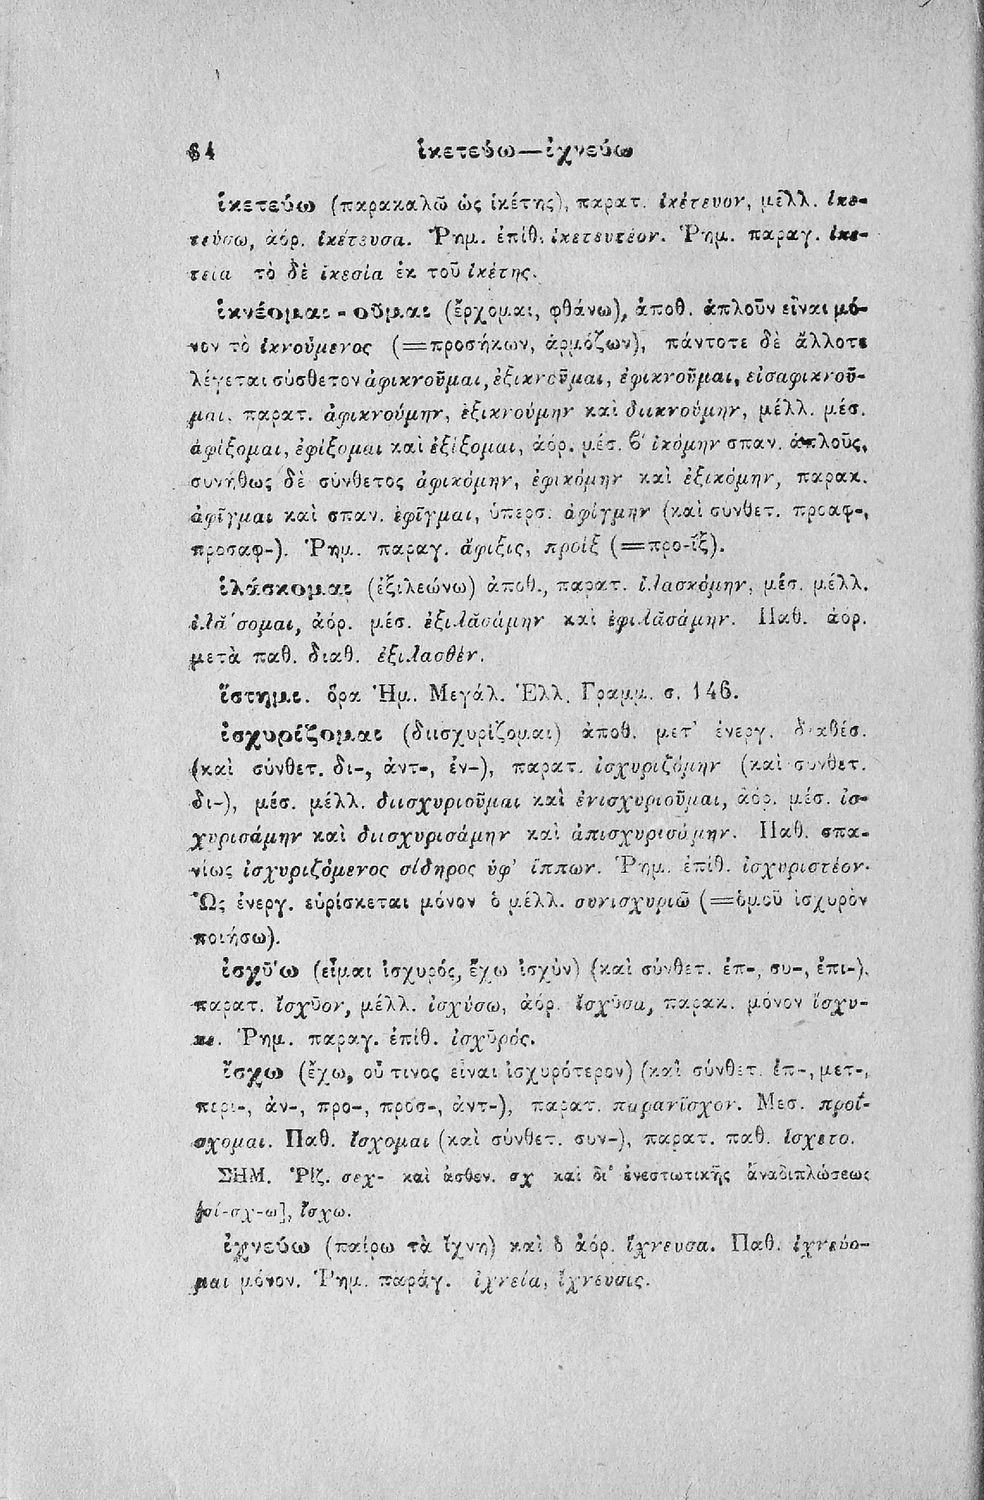 64 ἱκετεύω—ἰχνεύω
ἱκετεύω (παρακαλῶ ὡς ἱκέτης), παρατ. ἱκέτευον, μέλλ. ἱκε-
τεύσω, ἀόρ. ἱκέτευσα. Ῥημ. ἐπίθ. ἱκετευτέον. Ῥημ. παραγ. ἱκε-
τεια τὸ δὲ ἱκεσία ἐκ τοῦ ἱκέτης.
ἱκνέομαι - οῦμαι (ἔρχομαι, φθάνω), ἀποθ. ἁπλοῦν εἶναι μό-
νον τὸ ἱκνούμενος (=προσήκων, ἁρμόζων), πάντοτε δὲ ἄλλοτε
λέγεται σύσθετον ἀφικνοῦμαι, ἐξικνοῦμαι, ἐφικνοῦμαι, εἰσαφικνοῦ-
μαι. παρατ. ἀφικνούμην, ἐξικνούμην καὶ διικνούμην, μέλλ. μέσ.
ἀφίξομαι, ἐφίξομαι καὶ ἐξίξομαι, ἀόρ. μέσ. β' ἱκόμην σπαν. ἁπλοῦς,
συνήθως δὲ σύνθετος ἀφικόμην, ἐφικόμην καὶ ἐξικόμην, παρακ.
ἀφῖγμαι καὶ σπαν. ἐφῖγμαι, ὑπερσ. ἀφίγμην (καὶ συνθετ. προαφ-,
προσαφ-). Ῥημ. παραγ. ἄφιξις, προὶξ (=προ-ῖξ).
ἱλάσκομαι (ἐξιλεώνω) ἀποθ., παρατ. ἱλασκόμην, μέσ. μέλλ.
ἱλᾱ́σομαι, ἀόρ. μέσ. ἐξιλᾱσάμην καὶ ἐφιλᾱσάμην. Παθ. ἀόρ.
μετὰ παθ. διαθ. ἐξιλασθὲν.
ἵστημι. ὅρα Ἡμ. Μεγάλ. Ἑλλ. Γραμμ. σ. 146.
ἰσχυρίζομαι (διισχυρίζομαι) ἀποθ. μετ' ἐνεργ. διαθέσ.
(καὶ σύνθετ. δι-, ἀντ-, ἐν-), παρατ. ἰσχυριζόμην (καὶ συνθετ.
δι-), μέσ. μέλλ. διισχυριοῦμαι καὶ ἐνισχυριοῦμαι, ἀόρ. μέσ. ἰσ-
χυρισάμην καὶ διισχυρισάμην καὶ ἀπισχυρισάμην. Παθ. σπα-
νίως ἰσχυριζόμενος σίδηρος ὑφ' ἵππων. Ῥημ. ἐπίθ. ἰσχυριστέον.
Ὡς ἐνεργ. εὑρίσκεται μόνον ὁ μέλλ. συνισχυριῶ (=ὁμοῦ ἰσχυρὸν
ποιήσω).
ἰσχῡ́ω (εἶμαι ἰσχυρός, ἔχω ἰσχύν) (καὶ σύνθετ. ἐπ-, συ-, ἐπι-).
παρατ. ἴσχῡον, μέλλ. ἰσχύσω, ἀόρ. ἴσχῡσα, παρακ. μόνον ἴσχυ-
κε. Ῥημ. παραγ. ἐπίθ. ἰσχῡρός.
ἴσχω (ἔχω, οὗ τινος εἶναι ἰσχυρότερον) (καὶ σύνθετ. ἐπ-, μετ-,
περι-, ἀν-, προ-, προσ-, ἀντ-), παρατ. παρανῖσχον. Μεσ. προΐ-
σχομαι. Παθ. ἴσχομαι (καὶ σύνθετ. συν-), παρατ. παθ. ἴσχετο.
ΣΗΜ. Ῥίζ. σεχ- καὶ ἀσθεν. σχ καὶ δι' ἐνεστωτικῆς ἀναδιπλώσεως
[σί-σχ-ω], ἴσχω.
ἰχνεύω (παίρω τὰ ἴχνη) καὶ ὁ ἀόρ. ἴχνευσα. Παθ. ἰχνεύο-
μαι μόνον. Ῥημ. παράγ. ἰχνεία, ἴχνευσις.